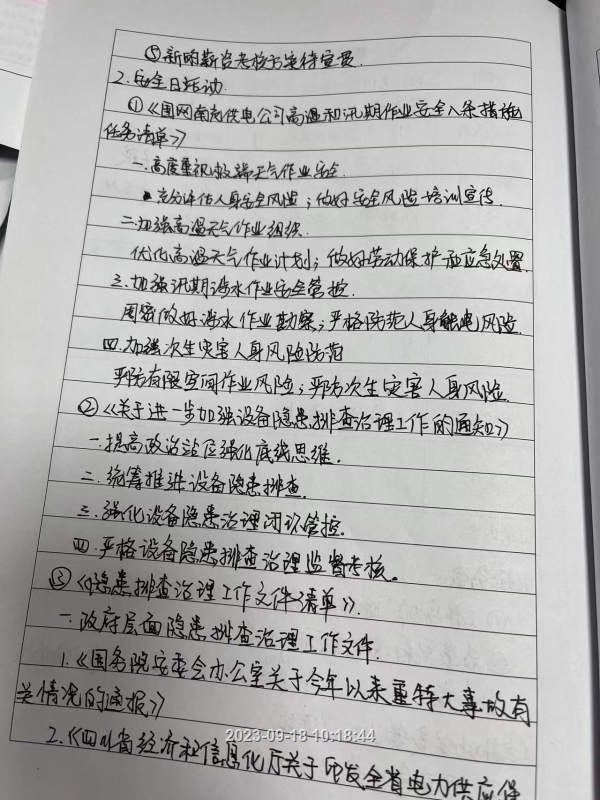 ⑤新的薪资考核方案待宣贯.
2.安全日活动.
①《国网南充供电公司高温和汛期作业安全八条措施
任务清单》
一.高度重视极端天气作业安全.
充分评估人身安全风险；做好安全风险培训宣传.
二.加强高温天气作业组织.
优化高温天气作业计划；做好劳动保护和应急处置.
三.加强汛期涉水作业安全管控.
周密做好涉水作业勘察；严格防范人身触电风险.
四.加强次生灾害人身风险防范
严防有限空间作业风险；严防次生灾害人身风险.
②《关于进一步加强设备隐患排查治理工作的通知》
一.提高政治站位强化底线思维.
二.统筹推进设备隐患排查.
三.强化设备隐患治理闭环管控.
四.严格设备隐患排查治理监督考核。
③《隐患排查治理工作文件清单》.
一.政府层面隐患排查治理工作文件.
1.《国务院安委会办公室关于今年以来重特大事故有
关情况的通报》
2023-09-18 10:18:44
2.《四川省经济和信息化厅关于印发全省电力供应保